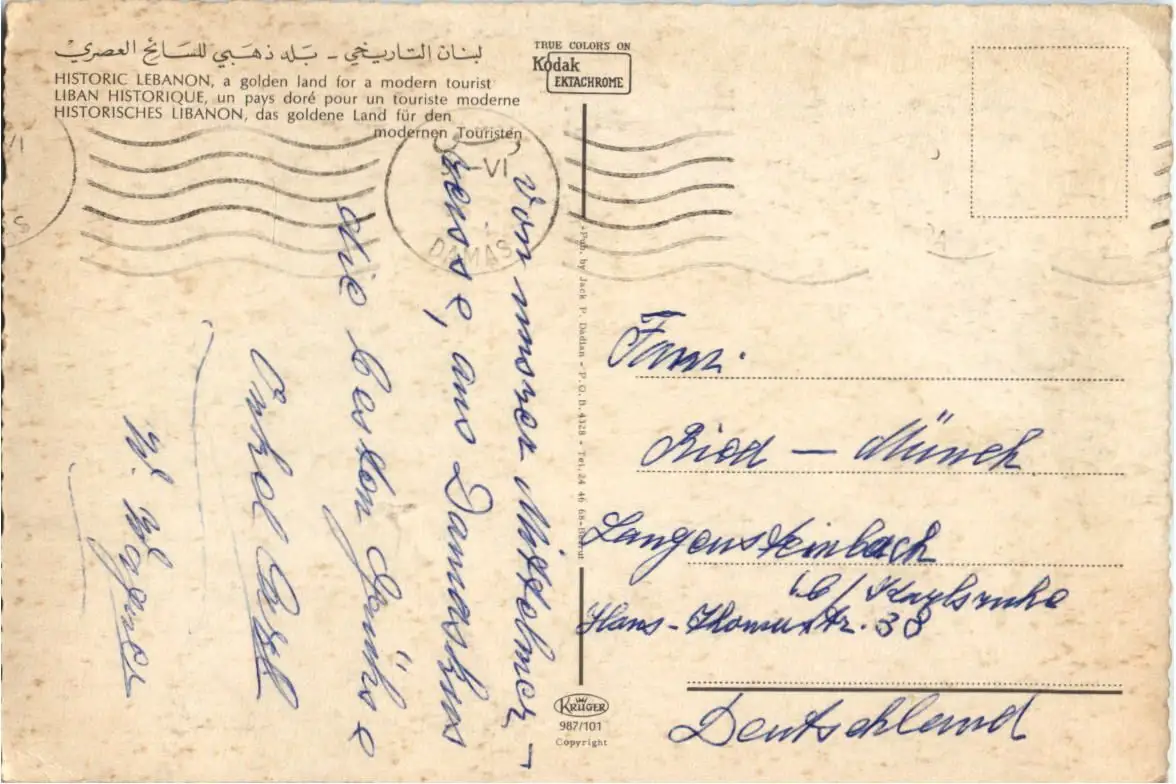 لبنان التاريخي - بلد ذهبي للسائح العصري
HISTORIC LEBANON, a golden land for a modern tourist
LIBAN HISTORIQUE, un pays doré pour un touriste moderne
HISTORISCHES LIBANON, das goldene Land für den
modernen Touristen
TRUE COLORS ON
Kodak
EKTACHROME
VI
DAMAS
VI
S
Von unserer Mittelmeer-
reise, aus Damaskus
die besten Grüße
Onkel Karl
W. Wagner
Pub. by Jack P. Dadian - P.O.B. 4328 - Tel. 24 46 68 - Beirut
Fam.
Ried - Münch
Langensteinbach
b/Karlsruhe
Hans-Thoma Str. 38
Deutschland
KRÜGER
987/101
Copyright